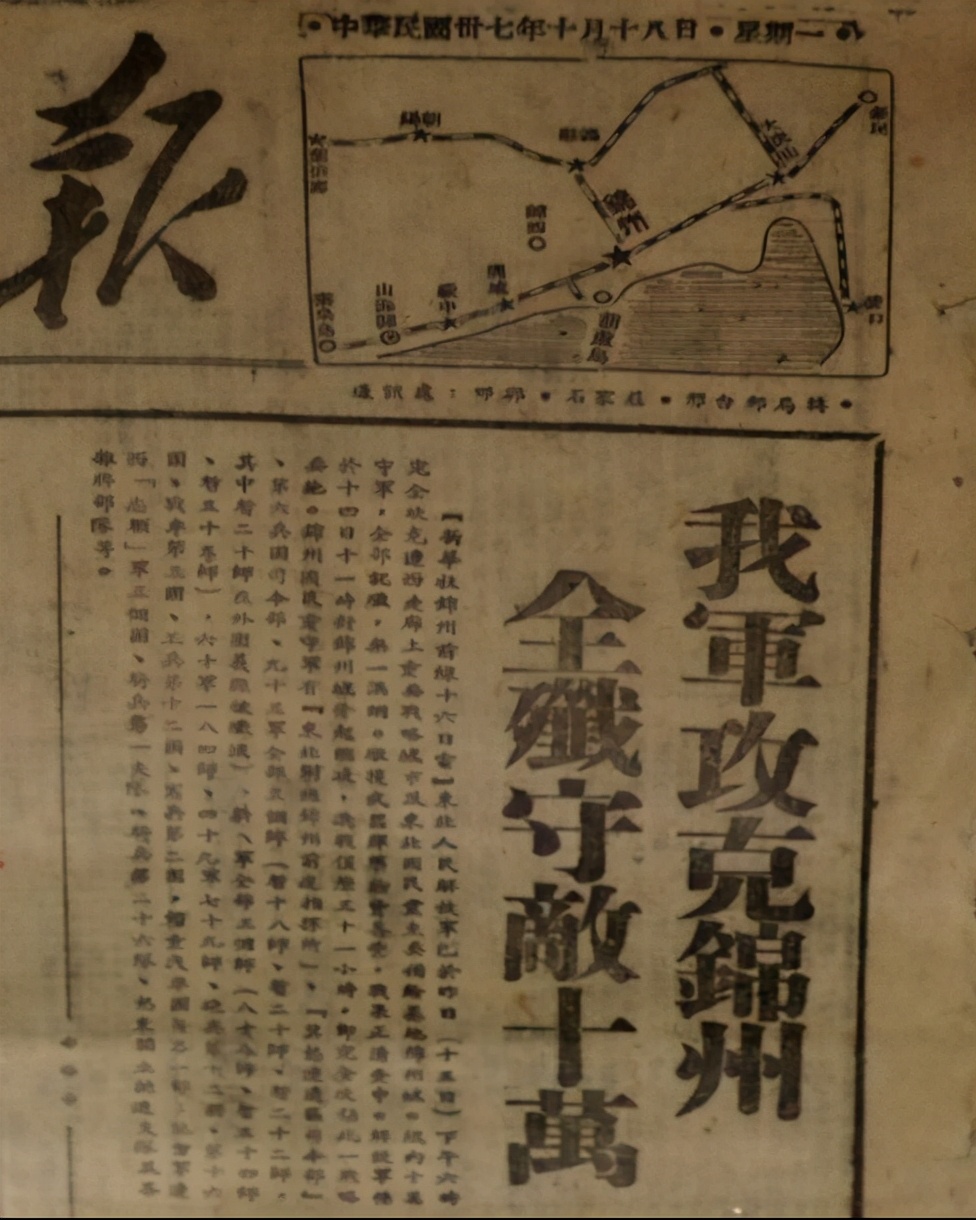 中華民國卅七年十月十八日•星期一
報
朝陽
義縣
新民
錦州
錦西
興城
綏中
山海關
秦皇島
葫蘆島
營口
通訊處：邯鄲•石家莊•邢台郵局轉•
我軍攻克錦州
全殲守敵十萬
【新華社錦州前線十六日電】東北人民解放軍已於昨日（十五日）下午六時
完全攻克遼西走廊上重要戰略城市及東北國民黨主要補給基地錦州城。城內十萬
守軍，全部就殲，無一漏網。
於十四日十一時對錦州城發起總攻，激戰僅三十一小時，即完全攻佔此一戰略
要地。錦州國民黨守軍有『東北剿總錦州前進指揮所』、『冀熱遼邊區司令部』
、第六兵團司令部、九十三軍全部三個師（暫十八師、暫二十師、暫二十二師，
其中暫二十師在外圍義縣被殲滅）、新八軍全部三個師（八十八師、暫五十四師
、暫五十五師），六十軍一八四師、四十九軍七十九師、砲兵第十二團、第十六
團、戰車第三團、工兵第十二團、憲兵第二團，
騎兵第一支隊、騎兵第二十六隊、
雜牌部隊等。